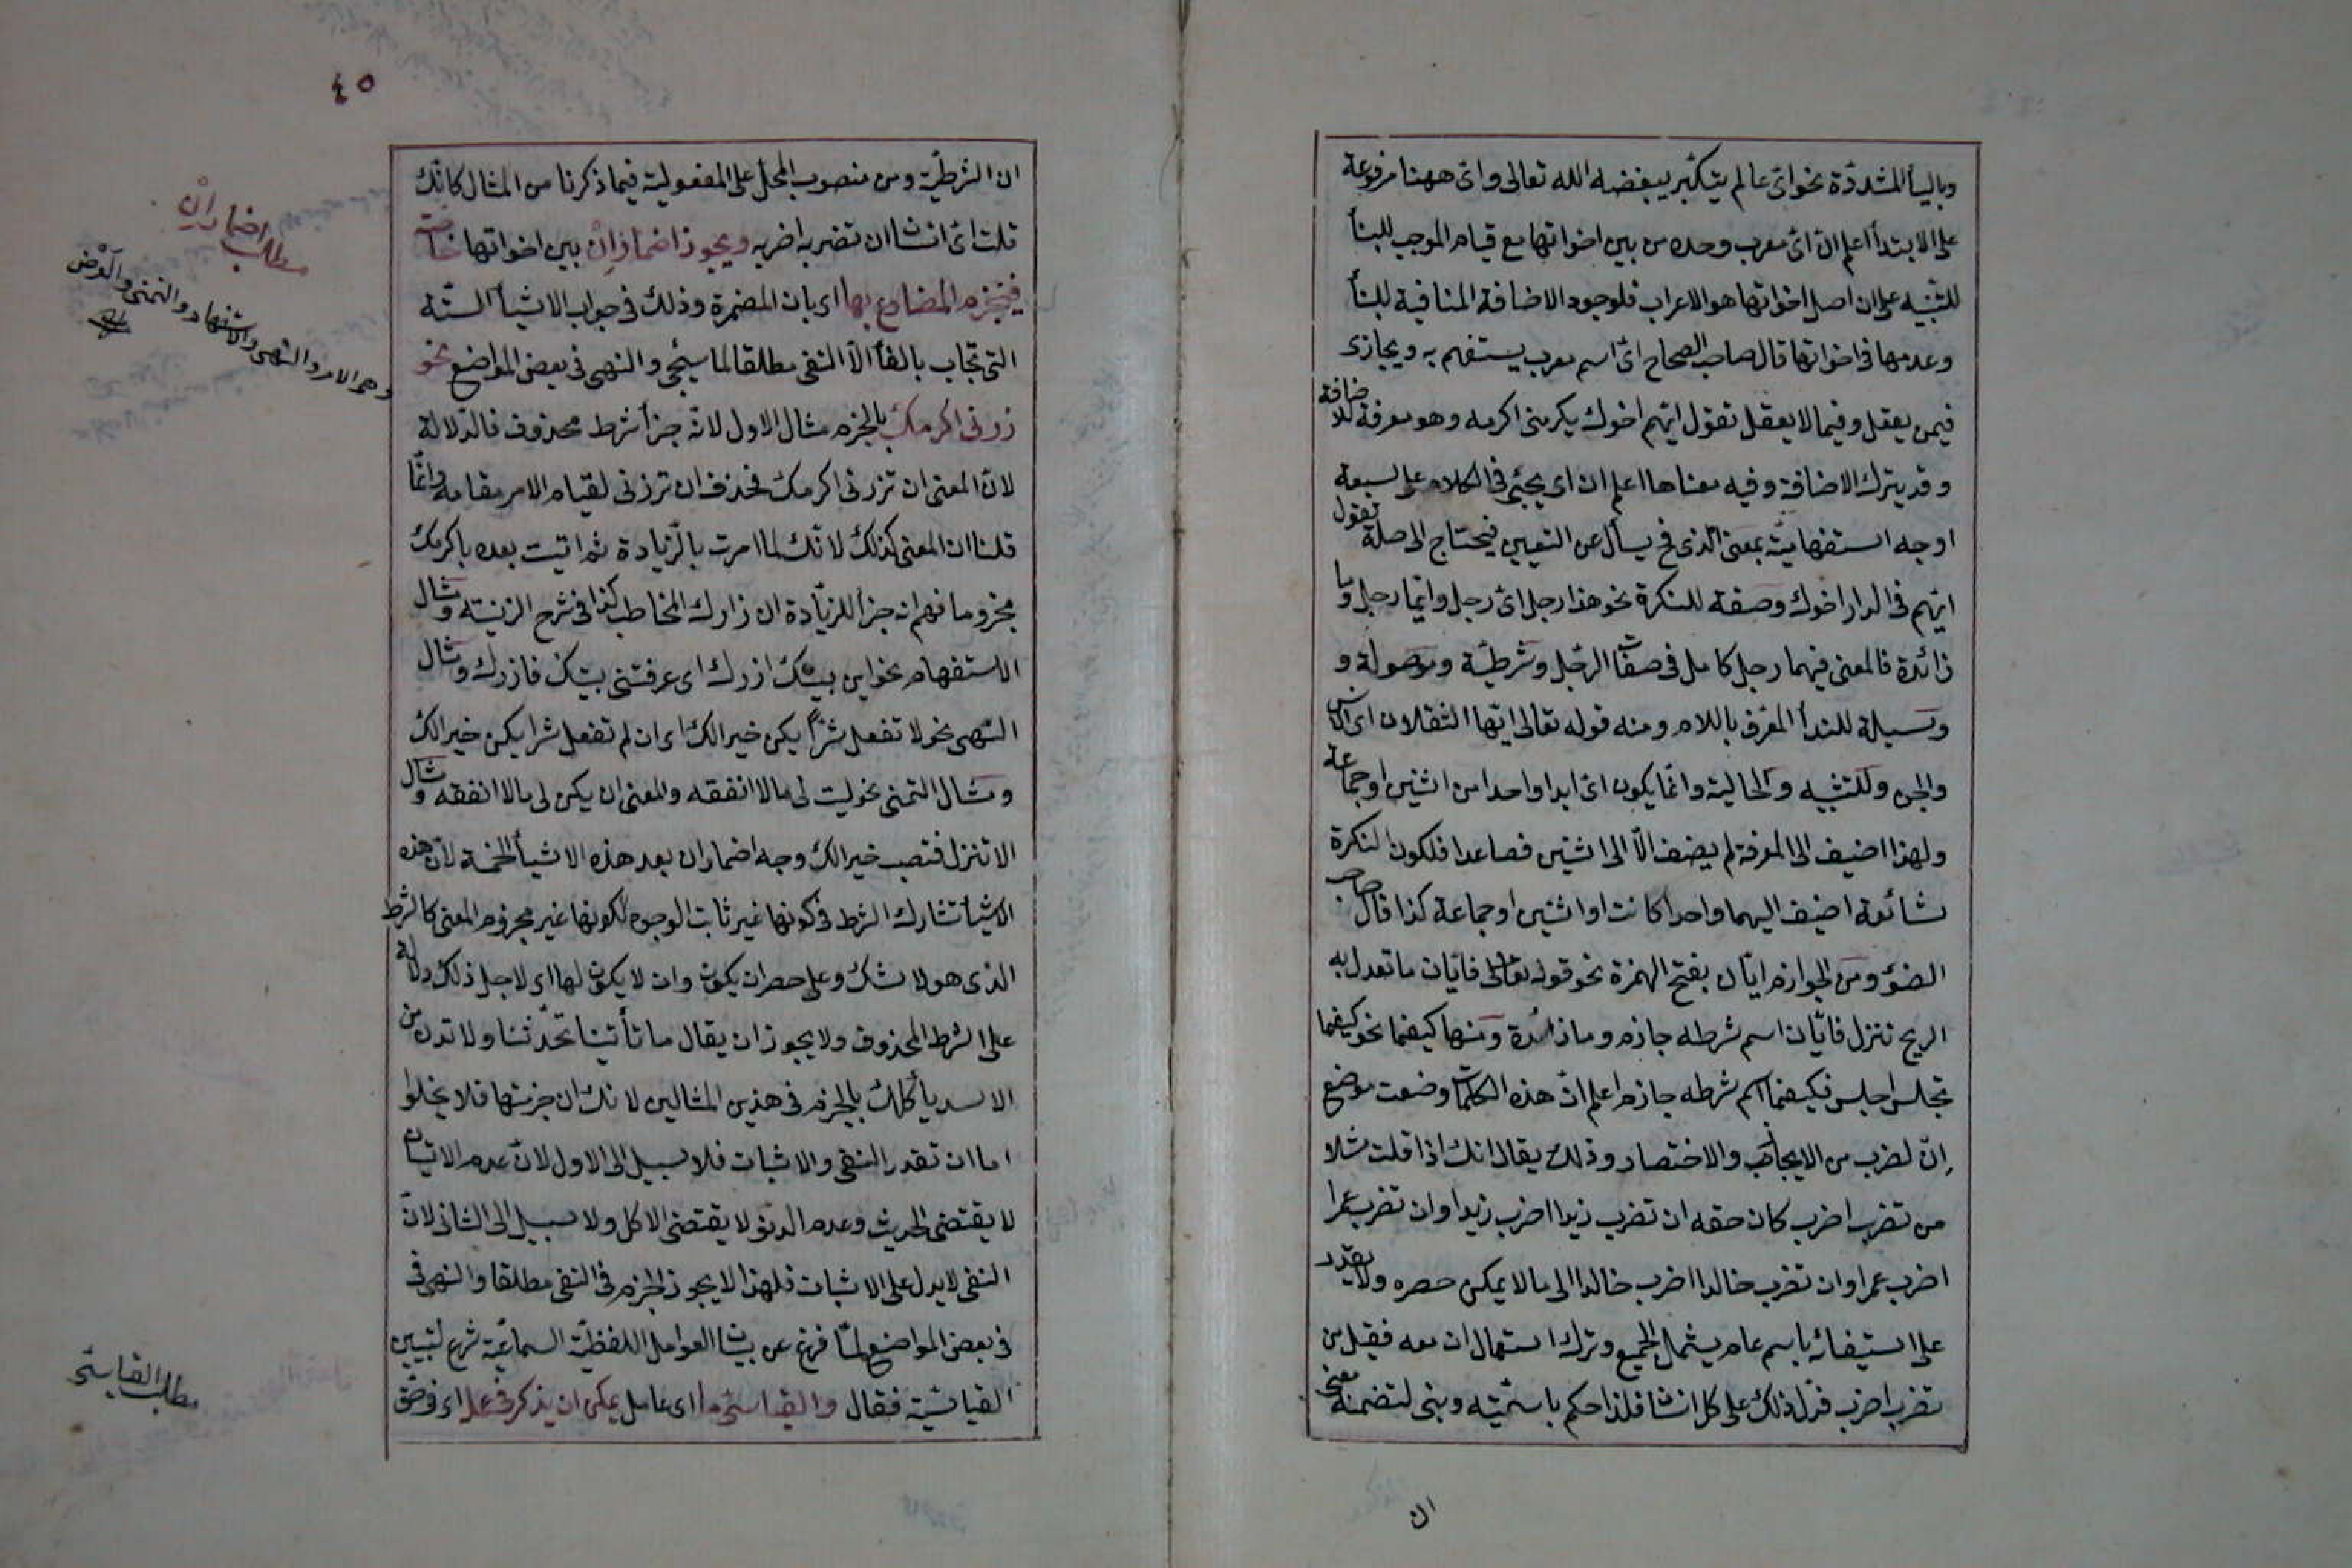 وبالياء المشددة نحو اىّ عالم يتكبّر يبغضه الله تعالى واىّ ههنا مرفوعة
على الابتدأ اعلم انّ اىّ معرب وحده من بين اخواتها مع قيام الموجب للبنأ
للتنبيه على ان اصل اخواتها هو الاعراب فلوجود الاضافة المنافية للبنأ
وعدمها فى اخواتها قال صاحب الصحاح اىّ اسم معرب يستفهم به ويجازى
فيمن يعقل وفيما لا يعقل تقول ايّهم اخوك يكرمنى اكرمه وهو معرفة للاضافة
وقد يترك الاضافة وفيه معناها اعلم ان اى يجئ فى الكلام على سبعة
اوجه استفهاميّة بمعنى الذى فح يسأل عن التعيين فيحتاج الى صلة تقول
ايّهم فى الدار اخوك وصفة للنكرة نحو هذا رجل اىّ رجل وايّما رجل وما
زائدة فالمعنى فيهما رجل كامل فى صفات الرجل وشرطيّة وموصولة و
وسيلة للندأ المعرّف باللام ومنه قوله تعالى ايّها الثقلان اى الناس
والجن وللتنبيه والحالية وانّما يكون اىّ ابدا واحدا من اثنين او جماعة
ولهذا اضيف الى المعرفة لم يضف الّا الى اثنين فصاعدا فلكون النكرة
شائعة اضيف اليهما واحدا كانت او اثنين او جماعة كذا قال صاحب
الضوء ومن الجوازم ايّان بفتح الهمزة نحو قوله تعالى فايّان ما تعدل به
الريح تنزل فايّان اسم شرطه جازم وما زائدة ومنها كيفما نحو كيفما
تجلس اجلس فكيفما اسم شرطه جازم اعلم انّ هذه الكلمات وضعت موضع
إن لضرب من الايجاز والاختصار وذلك يقال انك اذا قلت مثلا
من تضرب اضرب كان حقه ان تضرب زيدا اضرب زيدا وان تضرب عمرا
اضرب عمرا وان تضرب خالدا اضرب خالدا الى ما لا يمكن حصره ولا يقدر
على استيفائه باسم عام يشمل الجميع وترك استعمال ان معه فقيل من
تضرب اضرب فدلّ ذلك على كل انشا فلذا حكم باسميّته وبنى لتضمنه معنى
ان
٤٥
ان الشرطيّة ومن منصوب المحل على المفعولية فيما ذكرنا من المثال كانّك
قلت اىّ انشا ان تضرب اضرب ويجوز اضمار إن بين اخواتها خاصة
فينجزم المضارع بها اى بان المضمرة وذلك فى جواب الاشيأ الستّة
التى تجاب بالفأ الّا النفى مطلقا لما سيجئ والنهى فى بعض المواضع نحو
زرنى اكرمك بالجزم مثال الاول لانّه جزأ شرط محذوف فالدلالة
لانّ المعنى ان تزرنى اكرمك فحذف ان تزرنى لقيام الامر مقامه وانّما
قلنا ان المعنى كذلك لانّك لما امرت بالزّيادة ثم اتيت بعده باكرمك
مجزوما فهم انه جزأ للزيّادة ان زارك المخاطب كذا فى شرح الزينيّة ومثال
الاستفهام نحو اين بيتك ازرك اى عرفتنى بيتك فازرك ومثال
النهى نحو لا تفعل شرّا يكن خيرا لك اى ان لم تفعل شرا يكن خيرا لك
ومثال التمنى نحو ليت لى مالا انفقه والمعنى ان يكن لى مالا انفقه ومثال
الا تنزل فتصب خيرا لك وجه اضمار ان بعد هذه الاشيأ الخمسة لانّ هذه
الاشيأ تشارك الشرط فى كونها غير ثابت الوجود لكونها غير مجزوم المعنى كالشرط
الذى هو لا شك وعلى حصر ان يكون وان لا يكون لها اى لاجل ذلك دلالة
على الشرط المحذوف ولا يجوز ان يقال ما تأتينا تحدّثنا ولا تدن من
الاسد يأكلك بالجزم فى هذين المثالين لانك ان جزمتها فلا يخلوا
اما ان تقدر النفى والاثبات فلا سبيل الى الاول لانّ عدم الاتيان
لا يقتضى الحديث وعدم الدنو لا يقتضى الاكل ولا سبيل الى الثانى لانّ
النفى لا يدل على الاثبات فلهذا لا يجوز الجزم فى النفى مطلقا والنهى فى
فى بعض المواضع لمّا فرغ عن بيان العوامل اللفظيّة السماعيّة شرع لتبيين
القياسيّة فقال والقياسىّ ما اى عامل يمكن ان يذكر فى عمله اى فى حق
مطلب اضمار إن
وهى الامر والنهى والاستفهام والتمنى والعرض
مطلب القياسىّ